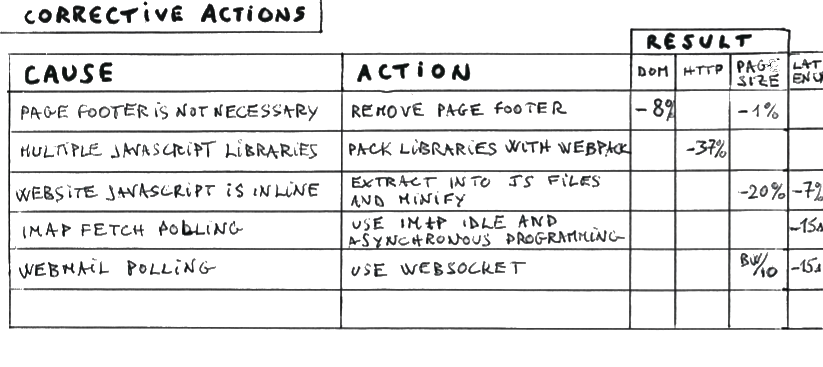 CORRECTIVE ACTIONS
RESULT
CAUSE ACTION DOM HTTP PAGE SIZE LATENCY
PAGE FOOTER IS NOT NECESSARY REMOVE PAGE FOOTER -8% -1%
MULTIPLE JAVASCRIPT LIBRARIES PACK LIBRARIES WITH WEBPACK -37%
WEBSITE JAVASCRIPT IS INLINE EXTRACT INTO JS FILES
AND MINIFY -20% -7%
IMAP FETCH POLLING USE IMAP IDLE AND
ASYNCHRONOUS PROGRAMMING -15s
WEBMAIL POLLING USE WEBSOCKET BW/10 -15s